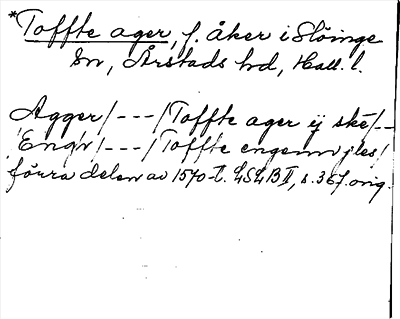 *Toffte ager, f. åker i Slöinge
sn, Årstads hd, Hall. l.
Agger/---/Toffte ager ij ske/--
/Engr/---/Toffte engenn j les/
förra delen av 1570-t. LSLB II, s. 367. orig.